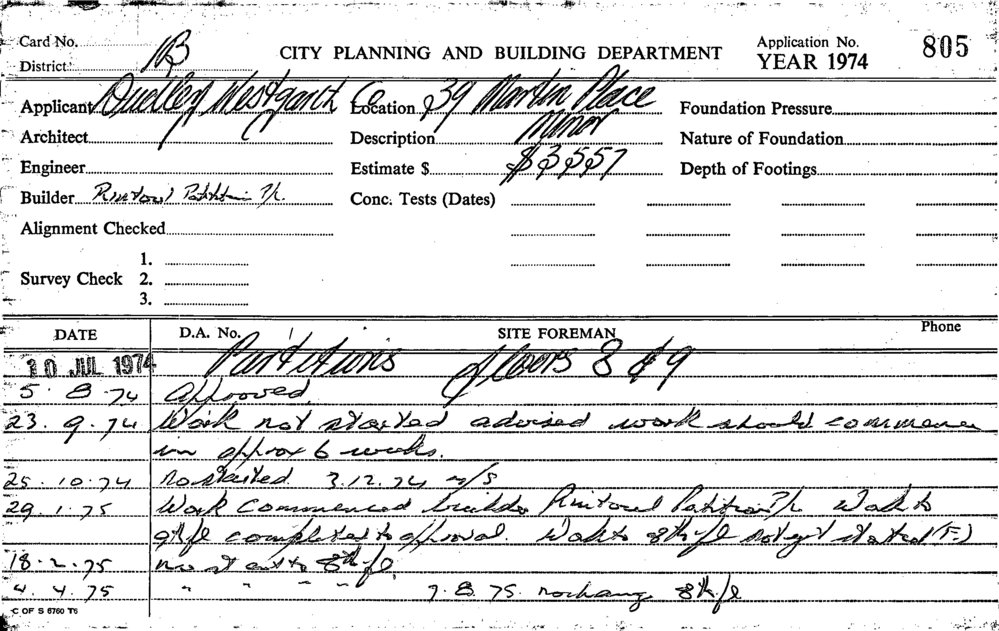 Card No. 11B CITY PLANNING AND BUILDING DEPARTMENT Application No. 805
District YEAR 1974
Applicant Dudley Westgarth Co Location 39 Martin Place Foundation Pressure
Architect Description Minor Nature of Foundation
Engineer Estimate $ $3557 Depth of Footings
Builder Rintoul P/L. Conc. Tests (Dates)
Alignment Checked
1.
Survey Check 2.
3.
DATE D.A. No. SITE FOREMAN Phone
10 JUL 1974 Partitions floors 8 & 9
5 8 74 Approved
23. 9. 74 Work not started advised work should commence
in approx 6 weeks.
25. 10. 74 no started 3.12.74 n/s
29. 1. 75 Work commenced builder Rintoul P/L Work to
9th fl completed to approval. Work to 8th fl not yet started (F.)
18. 2. 75 no start to 8th fl.
4. 4. 75 " " " " 7. 8. 75. no change 8th fl
C OF S 6760 T6